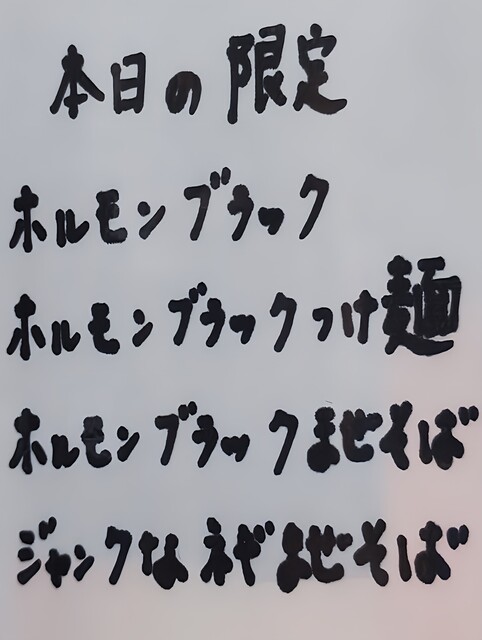 本日の限定
ホルモンブラック
ホルモンブラックつけ麺
ホルモンブラックまぜそば
ジャンクなネギまぜそば